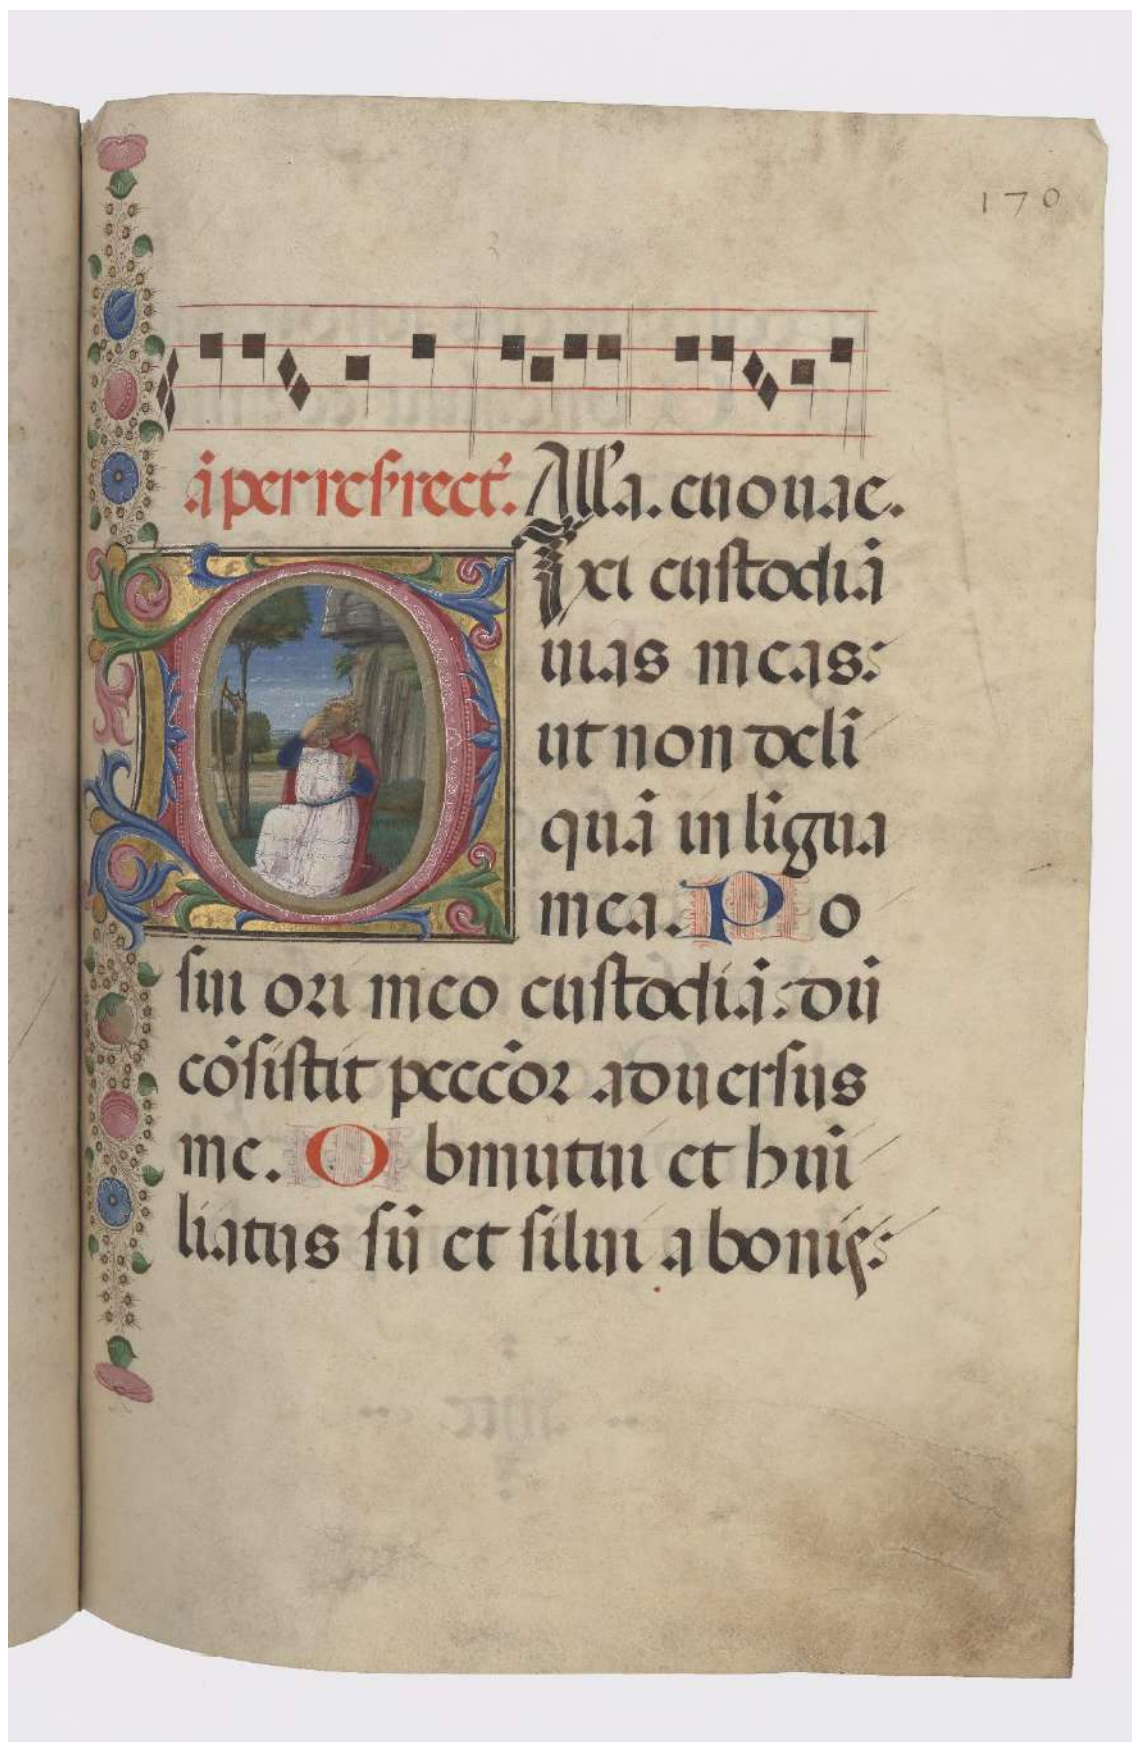 170
ā per resrect̄. All'a. euouae.
DIxi custodiā
uias meas:
ut non deli
quā in ligua
mea. Po
sui ori meo custodiā: dū
cōsistit peccōr aduersus
me. Obmutui et hūi
liatus sū et silui a bonis: